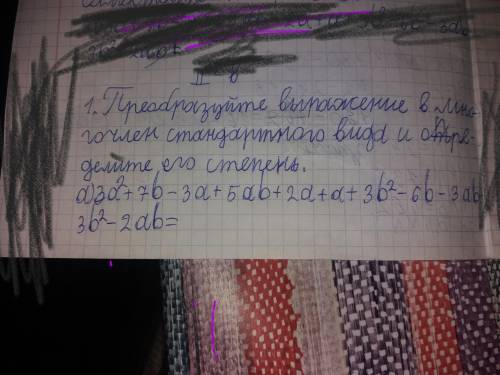 II в
1. Преобразуйте выражение в мно-
гочлен стандартного вида и опре-
делите его степень.
а) 3a²+7b-3a+5ab+2a+a+3b²-6b-3ab
3b²-2ab=